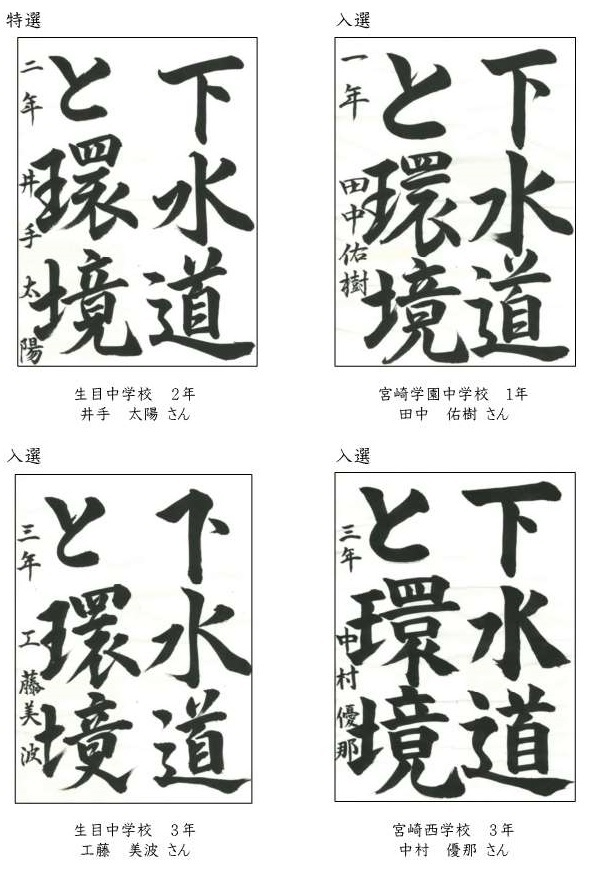 特選
下水道
と環境
二年 井手太陽
生目中学校 2年
井手 太陽 さん
入選
下水道
と環境
一年 田中佑樹
宮崎学園中学校 1年
田中 佑樹 さん
入選
下水道
と環境
三年 工藤美波
生目中学校 3年
工藤 美波 さん
入選
下水道
と環境
三年 中村優那
宮崎西学校 3年
中村 優那 さん